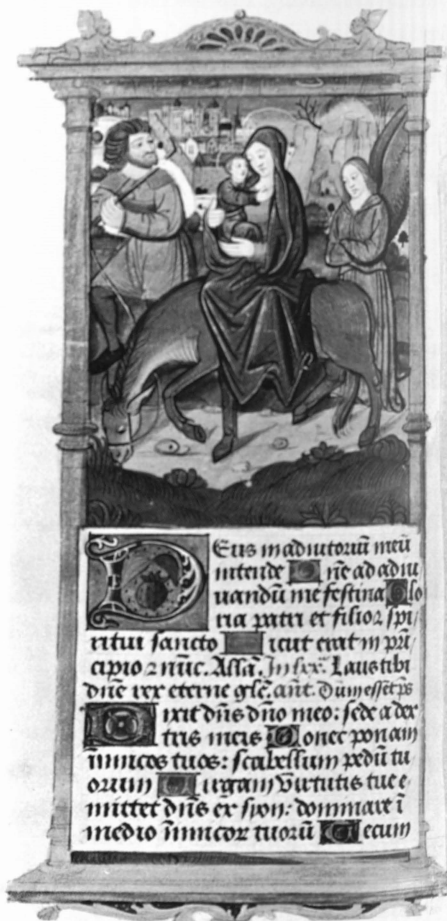 Deus in adiutoriū meū
intende Dn̄e ad adiu
uandū me festina Glo
ria patri et filio ꝛ spi
ritui sancto Sicut erat in prī
cipio ꝛ nūc. Alła. In lxx. Laus tibi
dn̄e rex eterne glē. ant̄. Dum esset ꝛs
Dixit dn̄s dn̄o meo: sede a dex
tris meis Donec ponam
inimicos tuos: scabellum pedū tu
orum Uirgam virtutis tue e
mittet dn̄s ex syon: dominare ī
medio inimicoꝝ tuorū Tecum